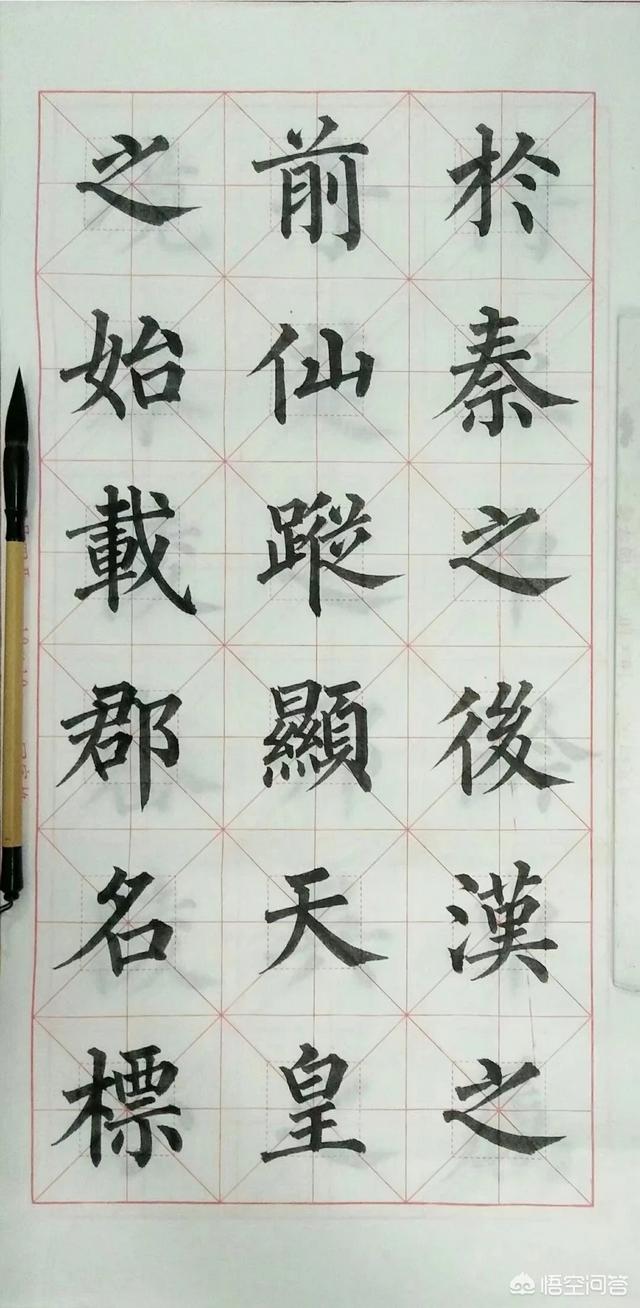 於秦之後漢之
前仙蹤顯天皇
之始載郡名標
悟空问答